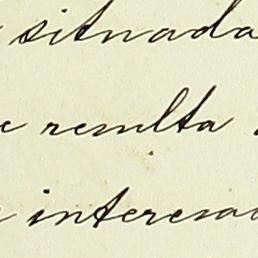 situada
resulta
interesa